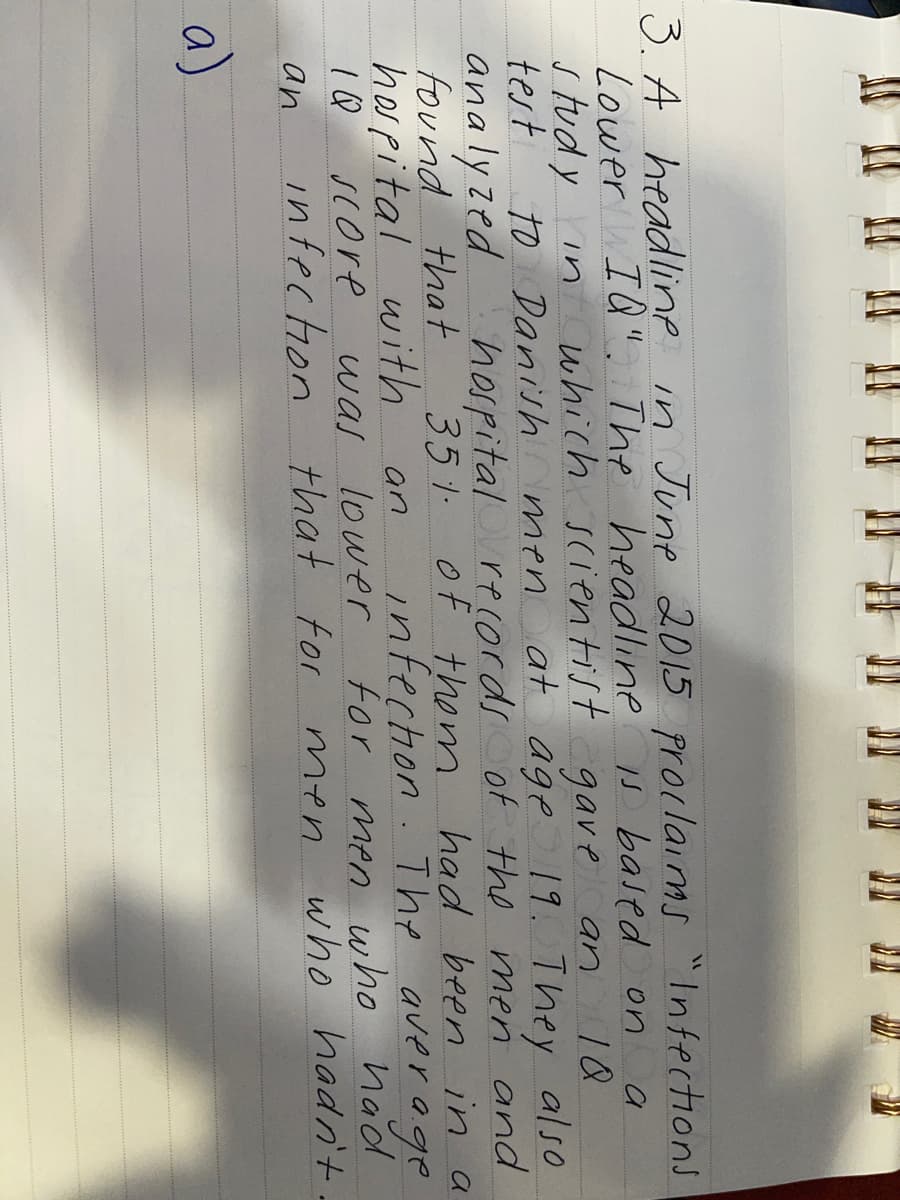 3. A headline in June 2015 proclaims "Infections
Lower IQ". The headline is based on a
study in which scientist gave an IQ
test to Danish men at age 19. They also
analyzed hospital records of the men and
found that 35% of them had been in a
hospital with an infection. The average
IQ score was lower for men who had
an infection that for men who hadn't.
a)